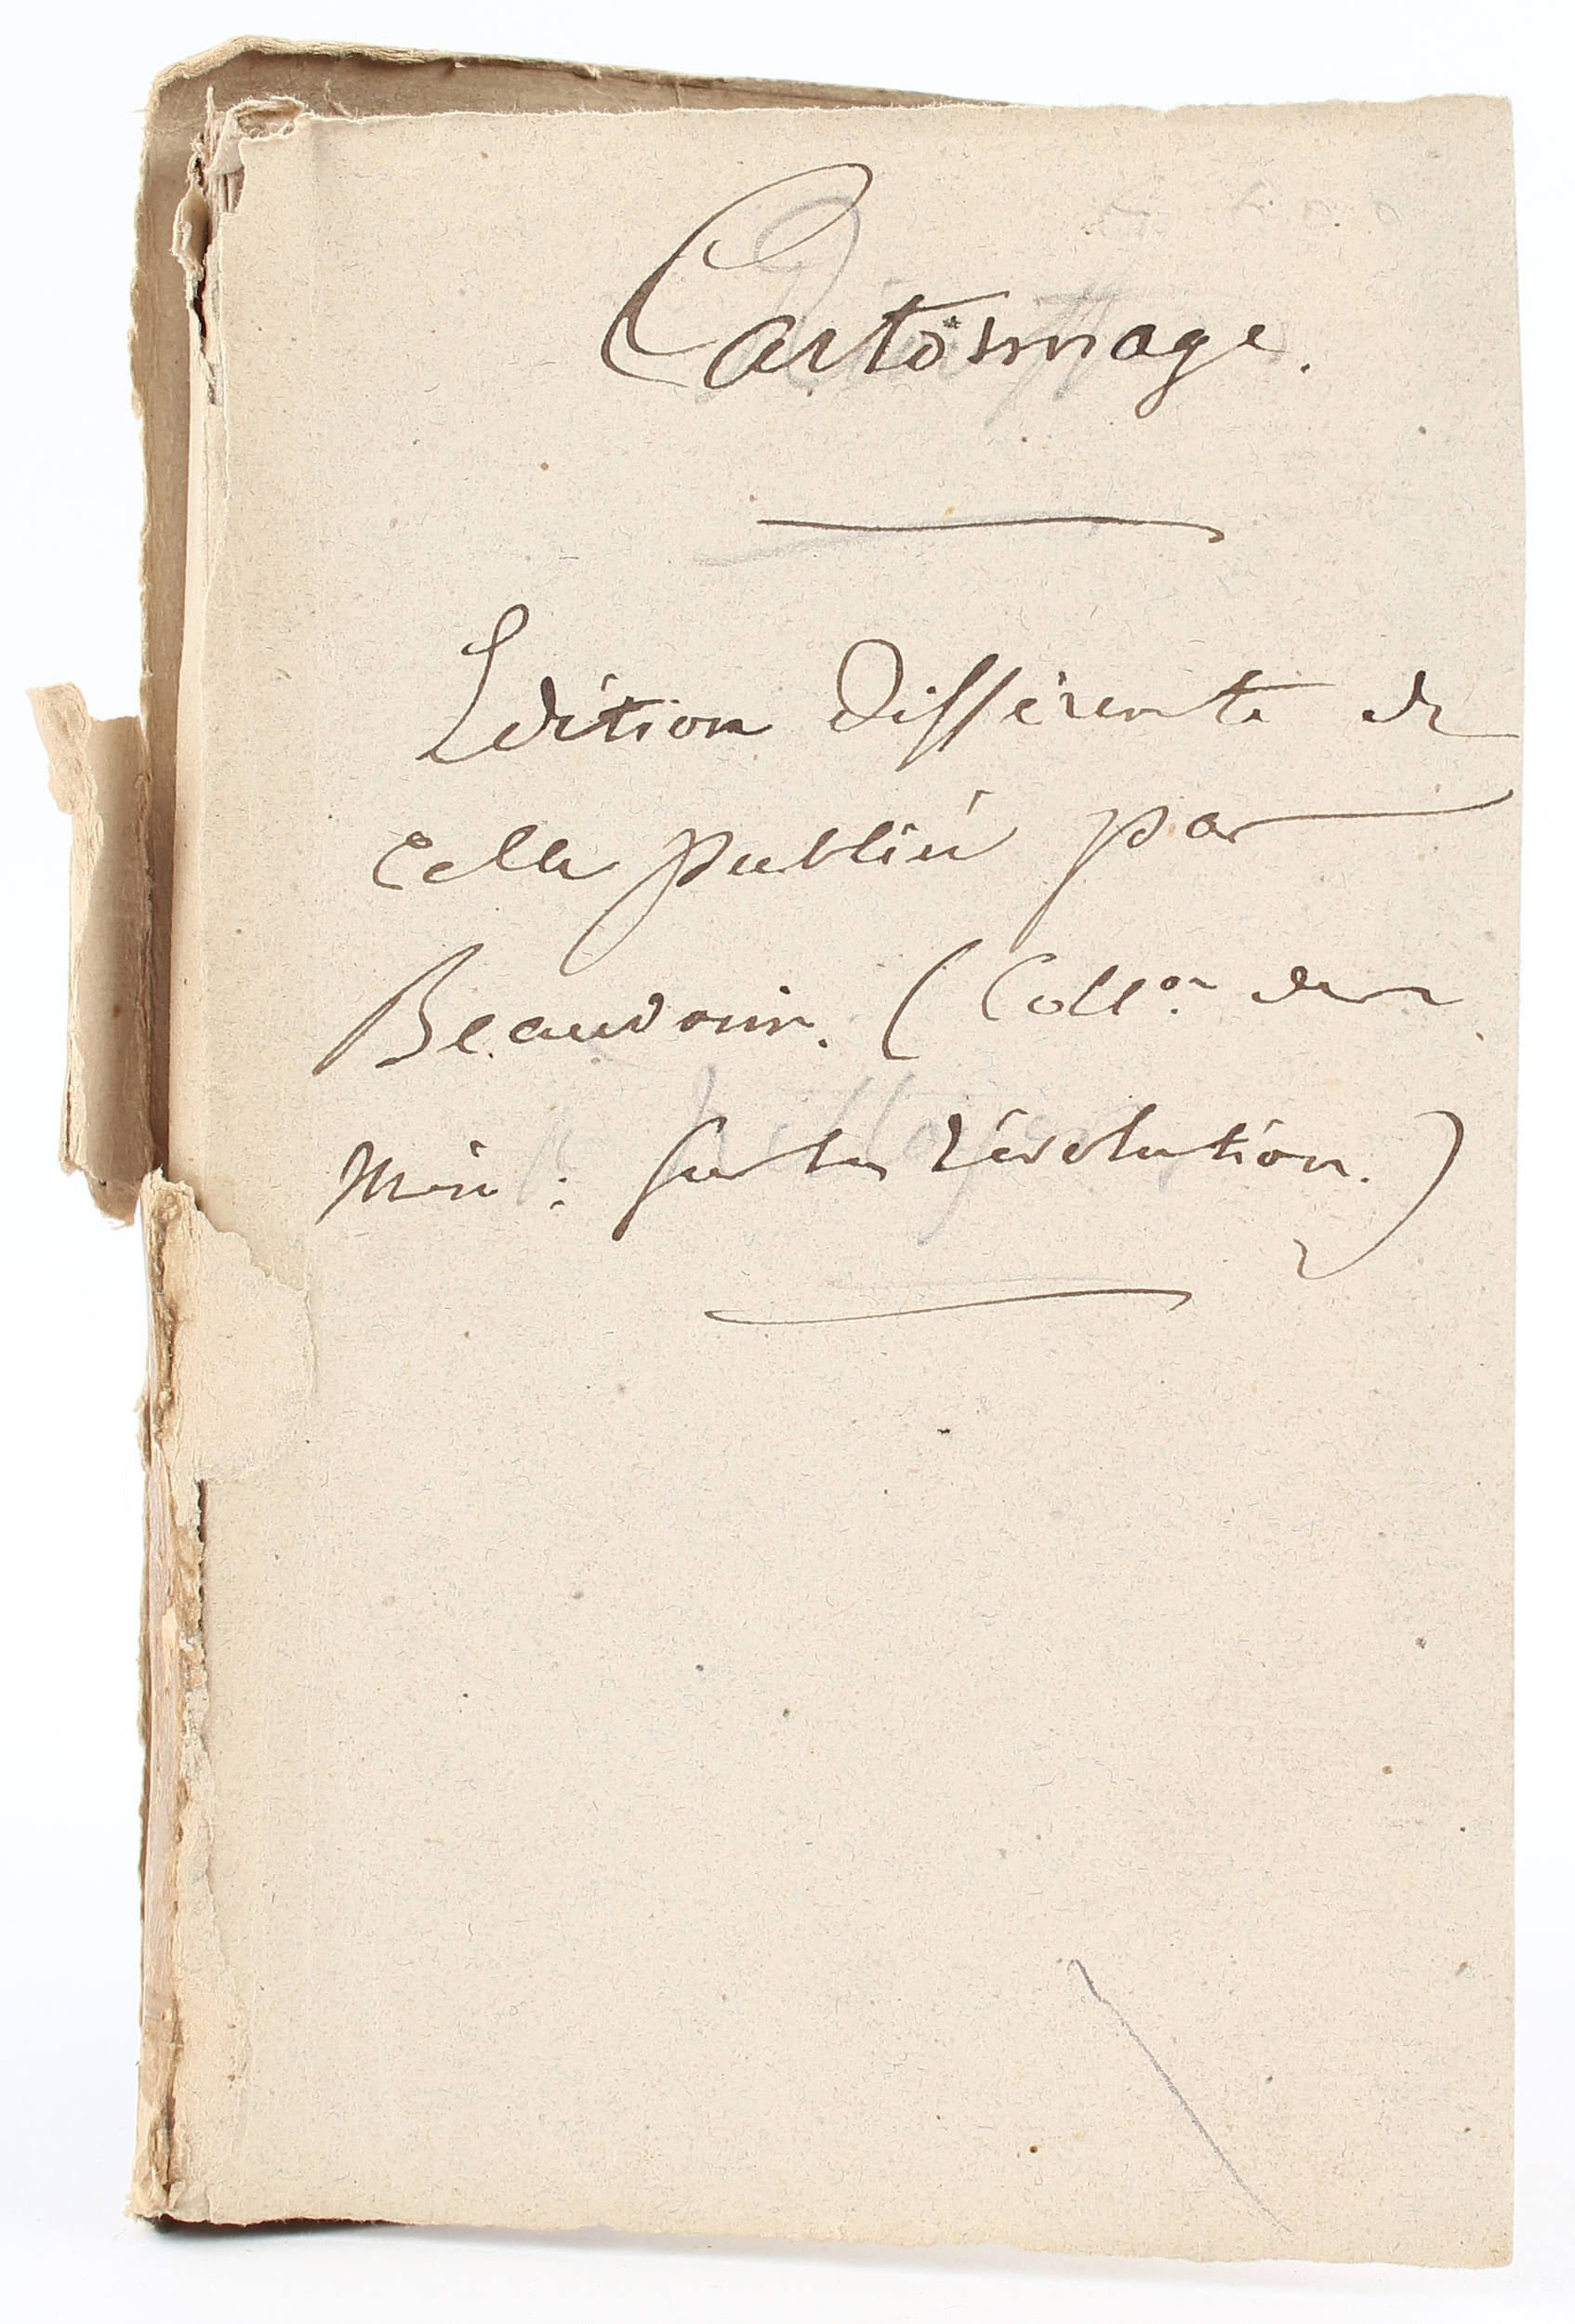 Cartonnage.
Edition différente de
celle publiée par
Beaudouin. (Coll.on des
Mém : sur la révolution.)